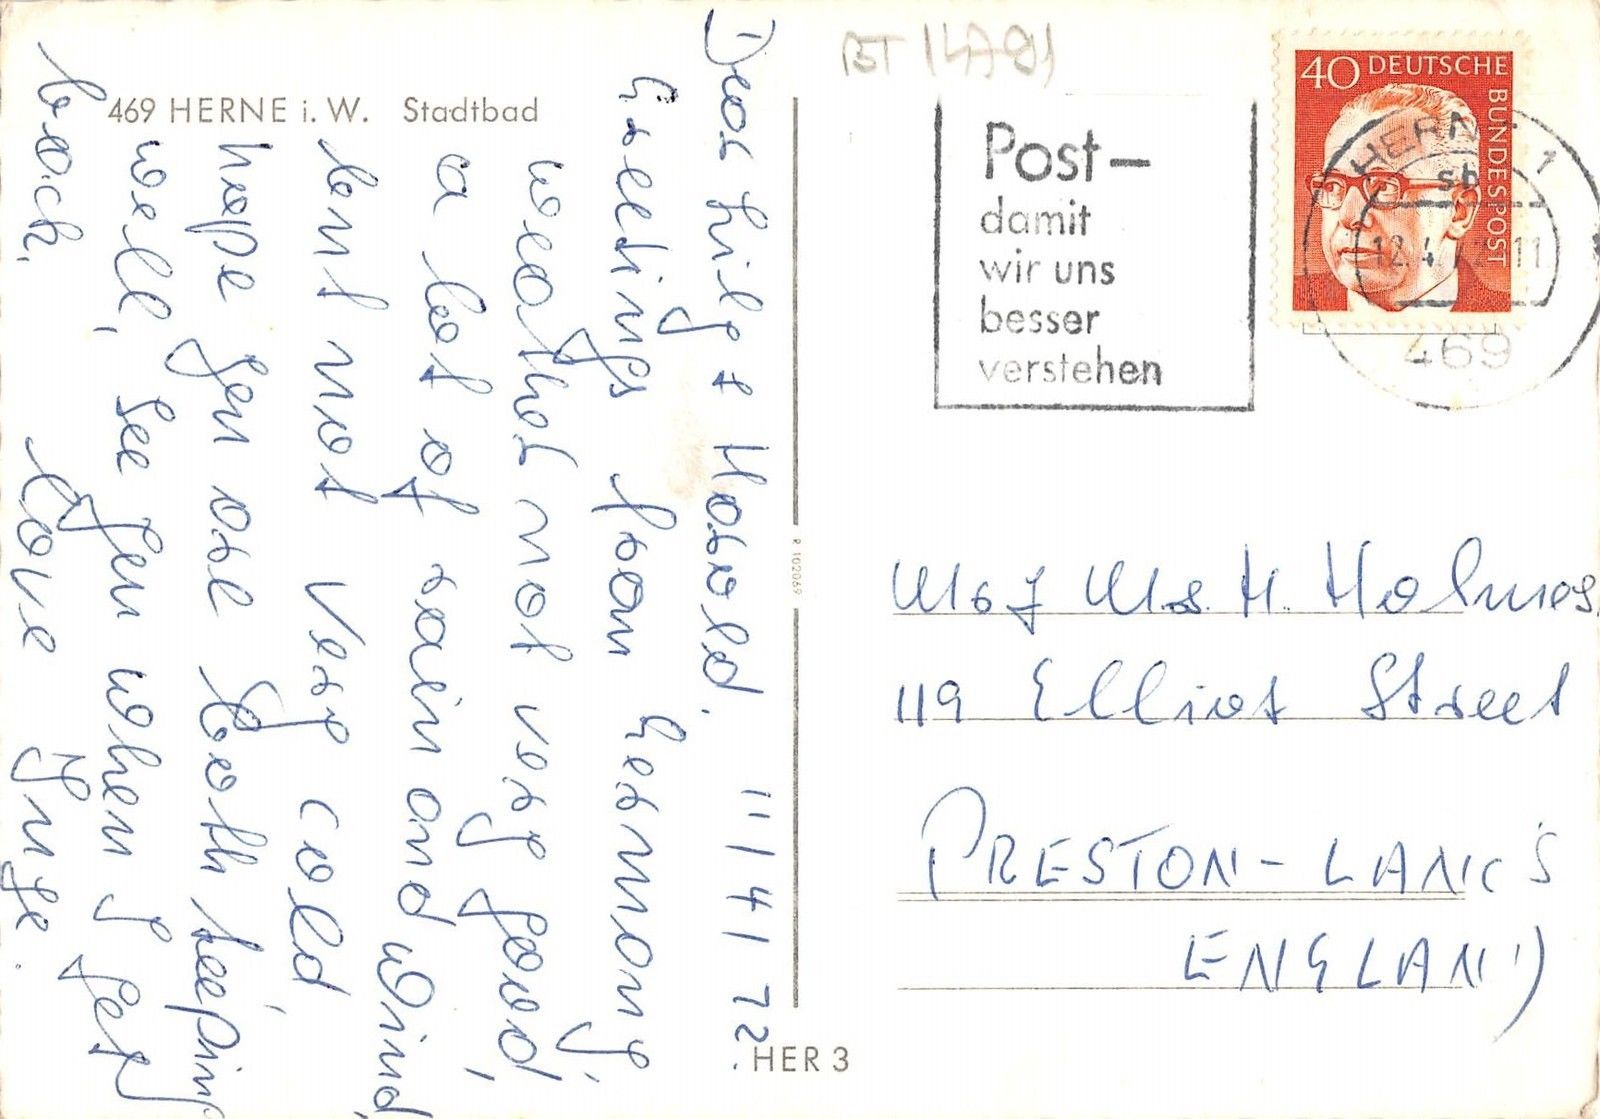 469 HERNE i. W. Stadtbad
Dear Lily & Harold. 11/4/72.
Greetings from Germany,
weather not very good,
a lot of rain and wind,
but not very cold
hope you are both keeping
well, see you when I get
back,
Love Inge.
R 102069
HER 3
Post–
damit
wir uns
besser
verstehen
40 DEUTSCHE
BUNDESPOST
HERNE 1
sb
12.4.72 11
469
Mr & Mrs. H. Holmes
119 Elliot Street
PRESTON – LANCS
ENGLAND